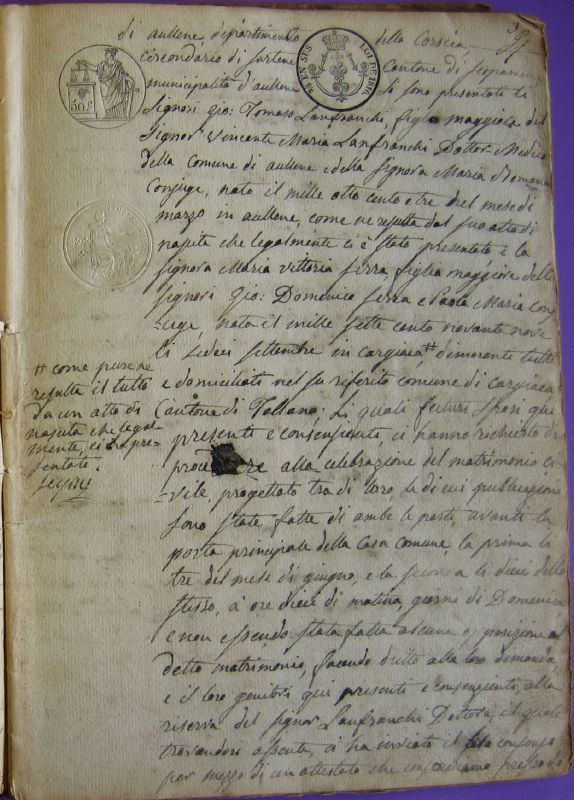 di aullene dipartimento della Corsica,
circondario di sartene Cantone di scopamene
municipalità d'aullene Si sono presentati li
Signori Gio: Tomaso Lanfranchi, figlio maggiore del
Signor Vincente Maria Lanfranchi Dottor Medico
della Comune di aullene e della Signora Maria
Conjuge, nato il mille otto cento e tre del mese di
marzo in aullene, come ne resulta dal suo atto di
nascita che legalmente ci è stato presentato e la
signora Maria Vittoria serra figlia maggiore delli
signori Gio: Domenico serra e Paola Maria Con
-juge, nata il mille sette cento novanta nove
li sedici settembre in cargiaca, # dimoranti tutti
e domiciliati nel su riferito comune di cargiaca
Cantone di Tallano; Li quali futuri sposi qui
presenti e consenzienti, ci hanno richiesto di
procedere alla celebrazione del matrimonio ci-
-vile, progettato tra di loro, le di cui publicazioni
sono state fatte di ambe le parti, avanti la
porta principale della Casa comune la prima li
tre del mese di giugno, e la seconda li dieci dello
stesso, a ore dieci di matina, giorni di Domenica
e non essendo stata fatta alcuna opposizione al
detto matrimonio, facendo dritto alla loro dimanda
e il loro genitori qui presenti e consenzienti, alla
riserva del signor Lanfranchi Dottore, il quale
trovandosi assente, ci ha inviato il suo consenso
per mezzo di un attestato che
# come pure ne
resulta il tutto
da un atto di
nascita che legal
mente, ci è pre-
sentato.
50 c
LOI DE 1816